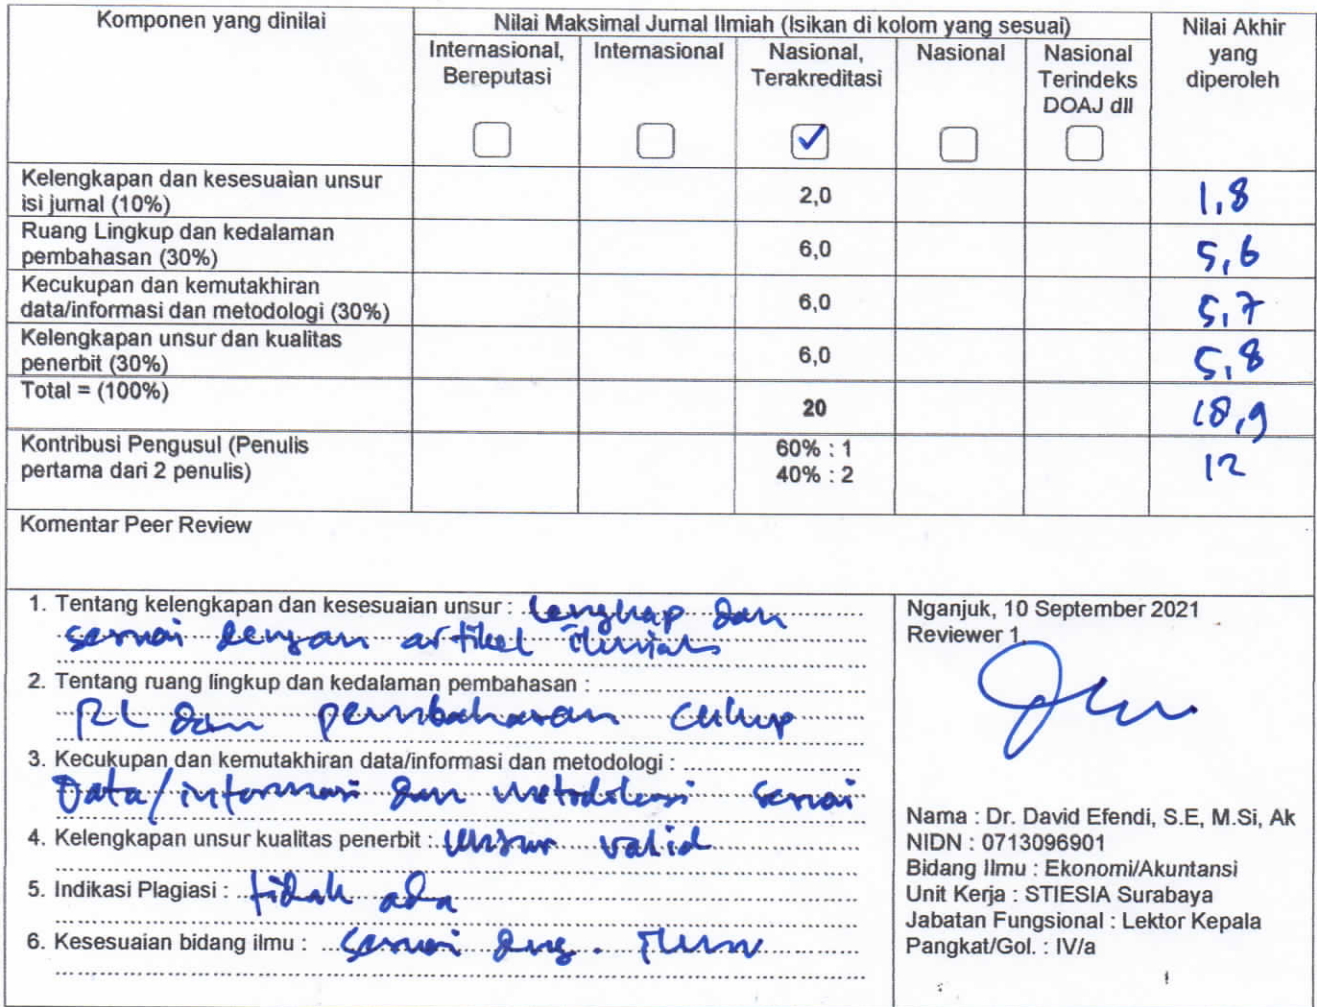 Komponen yang dinilai
Nilai Maksimal Jurnal Ilmiah (Isikan di kolom yang sesuai)
Nilai Akhir
yang
diperoleh
Internasional,
Bereputasi
Internasional
Nasional,
Terakreditasi
Nasional
Nasional
Terindeks
DOAJ dll
Kelengkapan dan kesesuaian unsur
isi jurnal (10%)
2,0
1,8
Ruang Lingkup dan kedalaman
pembahasan (30%)
6,0
5,6
Kecukupan dan kemutakhiran
data/informasi dan metodologi (30%)
6,0
5,7
Kelengkapan unsur dan kualitas
penerbit (30%)
6,0
5,8
Total = (100%)
20
18,9
Kontribusi Pengusul (Penulis
pertama dari 2 penulis)
60% : 1
40% : 2
12
Komentar Peer Review
1. Tentang kelengkapan dan kesesuaian unsur : Lengkap dan
sesuai dengan artikel ilmiah
2. Tentang ruang lingkup dan kedalaman pembahasan :
RL dan pembahasan cukup
3. Kecukupan dan kemutakhiran data/informasi dan metodologi :
Data/informasi dan metodologi sesuai
4. Kelengkapan unsur kualitas penerbit : Unsur valid
5. Indikasi Plagiasi : tidak ada
6. Kesesuaian bidang ilmu : sesuai dng. ilmu
Nganjuk, 10 September 2021
Reviewer 1,
Nama : Dr. David Efendi, S.E, M.Si, Ak
NIDN : 0713096901
Bidang Ilmu : Ekonomi/Akuntansi
Unit Kerja : STIESIA Surabaya
Jabatan Fungsional : Lektor Kepala
Pangkat/Gol. : IV/a